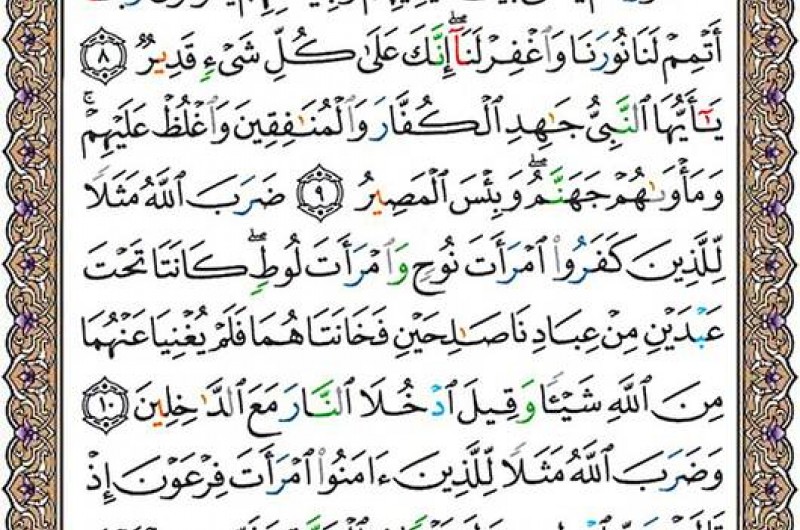 أَتْمِمْ لَنَا نُورَنَا وَٱغْفِرْ لَنَآ ۖ إِنَّكَ عَلَىٰ كُلِّ شَىْءٍ قَدِيرٌ ٨
يَـٰٓأَيُّهَا ٱلنَّبِىُّ جَـٰهِدِ ٱلْكُفَّارَ وَٱلْمُنَـٰفِقِينَ وَٱغْلُظْ عَلَيْهِمْ ۚ
وَمَأْوَىٰهُمْ جَهَنَّمُ ۖ وَبِئْسَ ٱلْمَصِيرُ ٩ ضَرَبَ ٱللَّهُ مَثَلًا
لِّلَّذِينَ كَفَرُوا۟ ٱمْرَأَتَ نُوحٍ وَٱمْرَأَتَ لُوطٍ ۖ كَانَتَا تَحْتَ
عَبْدَيْنِ مِنْ عِبَادِنَا صَـٰلِحَيْنِ فَخَانَتَاهُمَا فَلَمْ يُغْنِيَا عَنْهُمَا
مِنَ ٱللَّهِ شَيْـًٔا وَقِيلَ ٱدْخُلَا ٱلنَّارَ مَعَ ٱلدَّٰخِلِينَ ١٠
وَضَرَبَ ٱللَّهُ مَثَلًا لِّلَّذِينَ ءَامَنُوا۟ ٱمْرَأَتَ فِرْعَوْنَ إِذْ